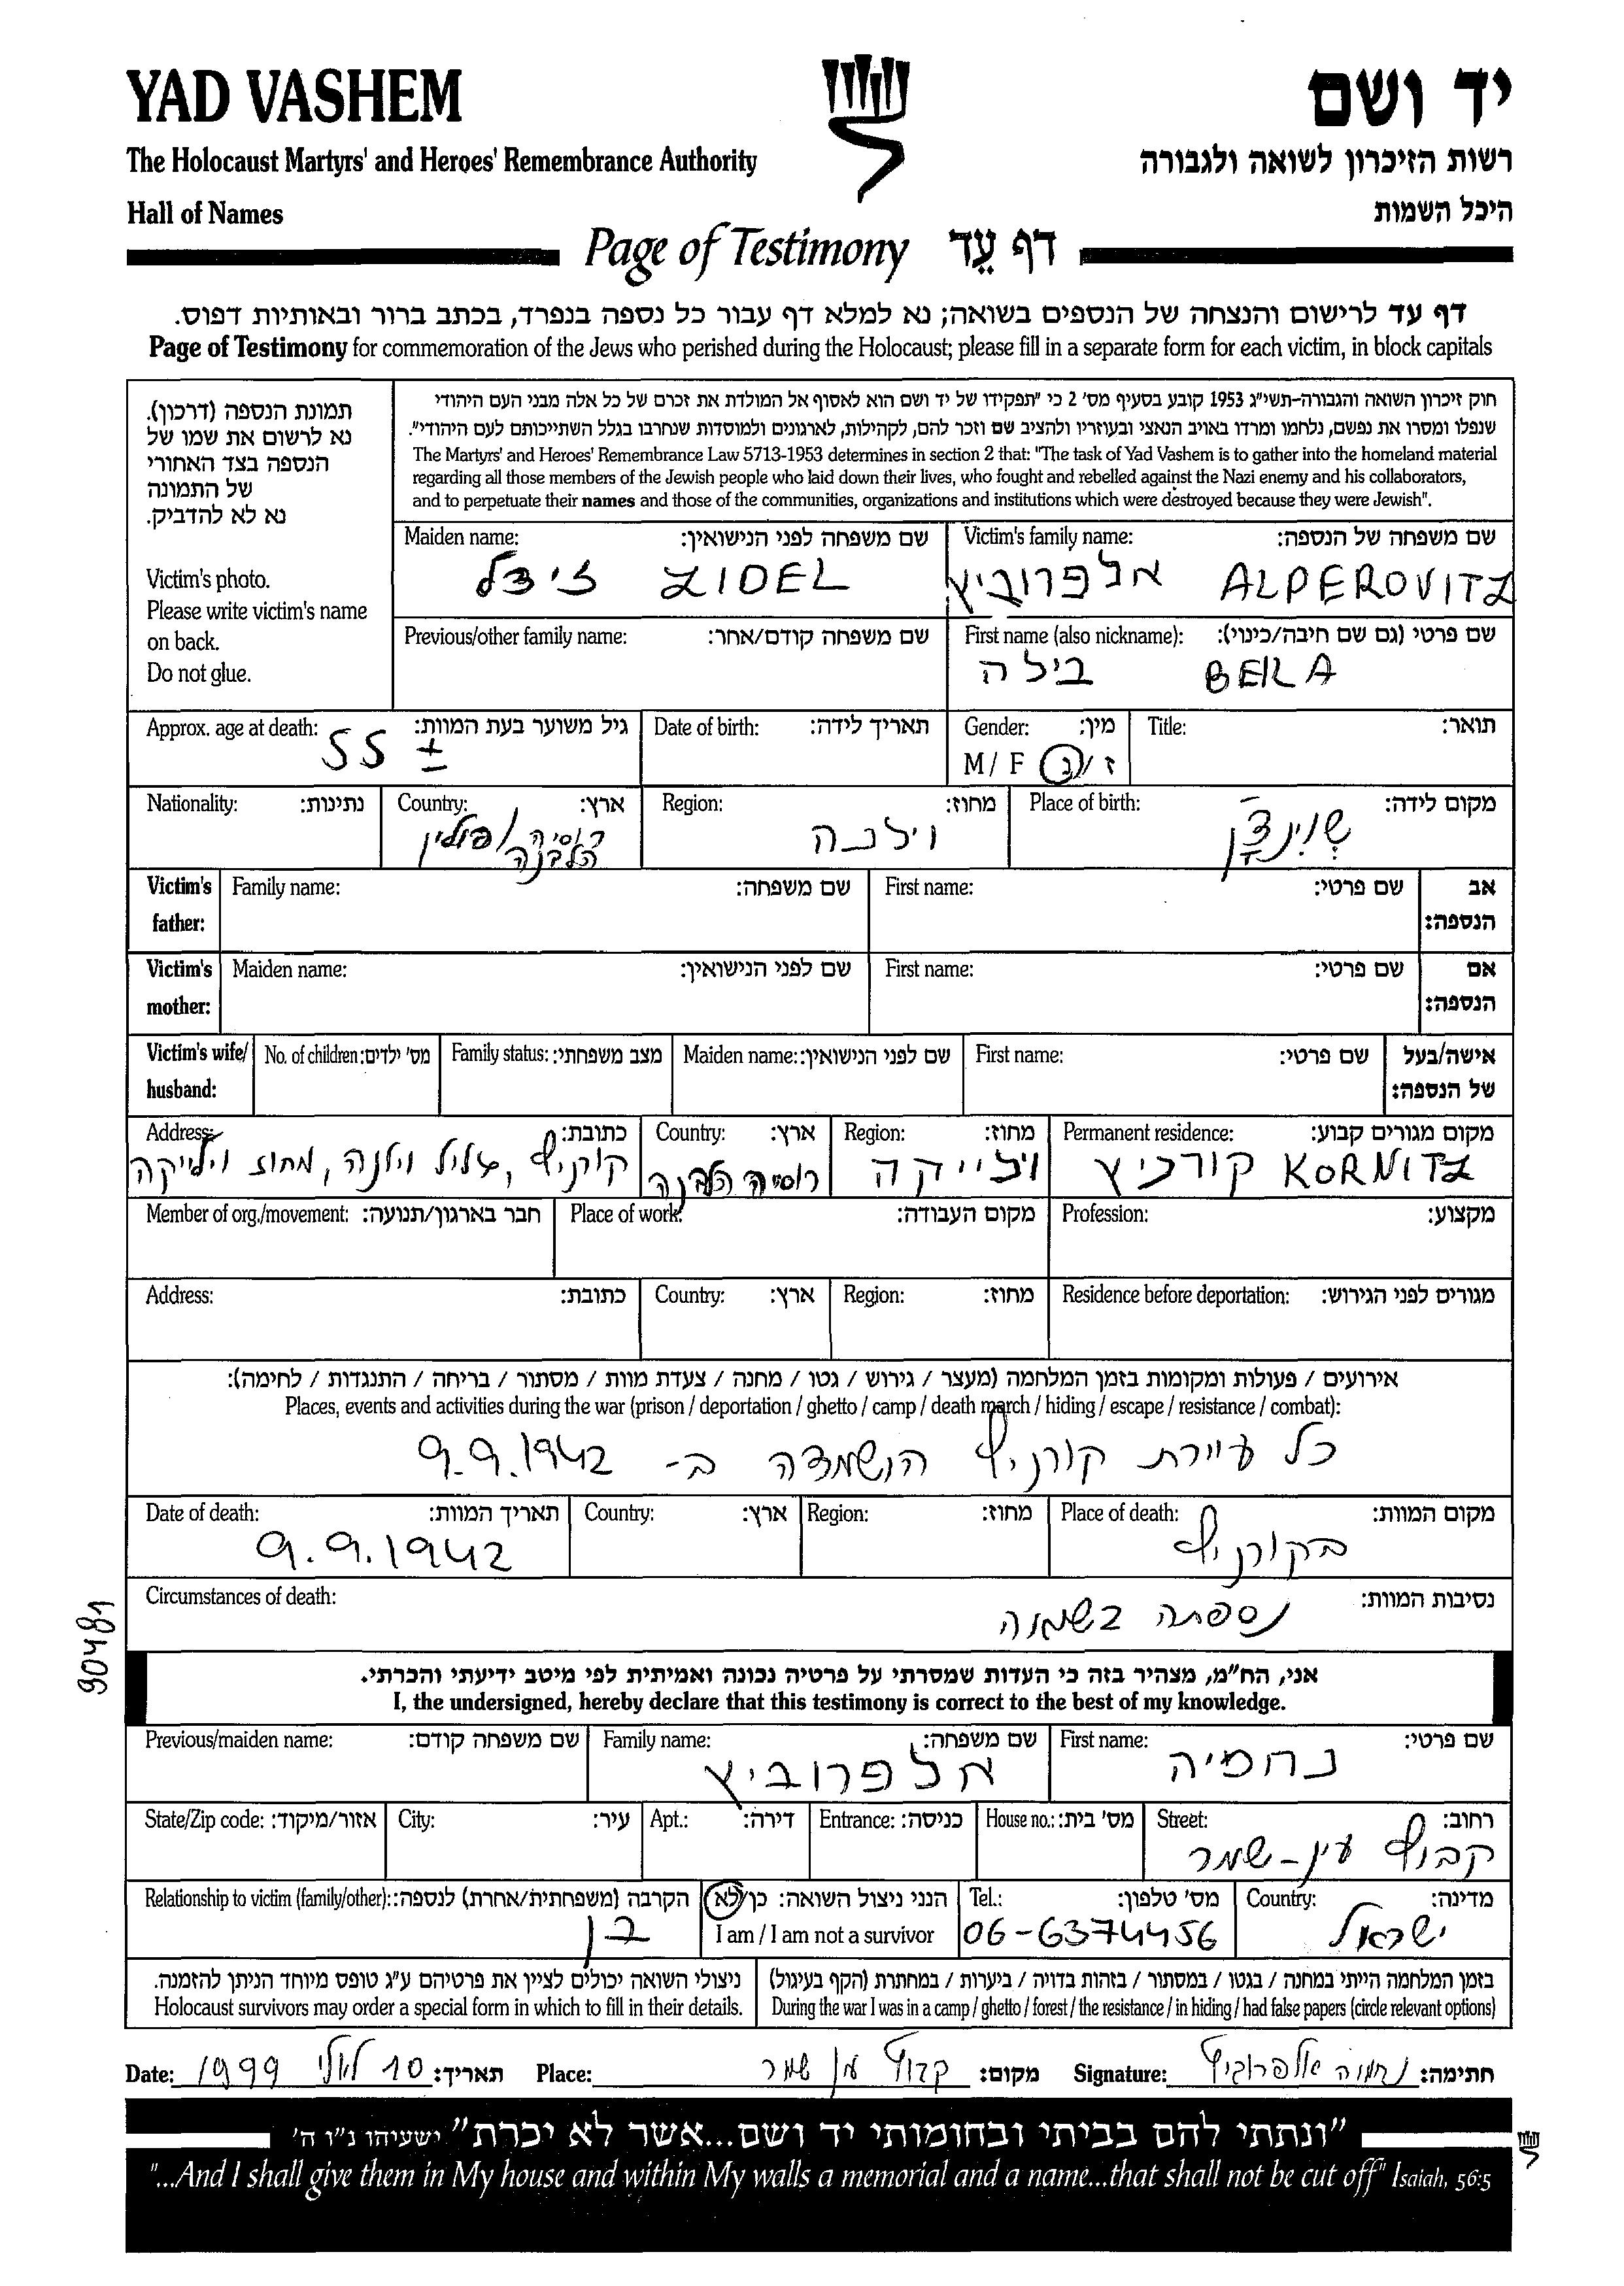 YAD VASHEM
יד ושם
The Holocaust Martyrs' and Heroes' Remembrance Authority
רשות הזיכרון לשואה ולגבורה
Hall of Names
היכל השמות
Page of Testimony דף עֵד
דף עד לרישום והנצחה של הנספים בשואה; נא למלא דף עבור כל נספה בנפרד, בכתב ברור ובאותיות דפוס.
Page of Testimony for commemoration of the Jews who perished during the Holocaust; please fill in a separate form for each victim, in block capitals
תמונת הנספה (דרכון).
נא לרשום את שמו של
הנספה בצד האחורי
של התמונה
נא לא להדביק.
Victim's photo.
Please write victim's name
on back.
Do not glue.
חוק זיכרון השואה והגבורה-תשי"ג 1953 קובע בסעיף מס' 2 כי "תפקידו של יד ושם הוא לאסוף אל המולדת את זכרם של כל אלה מבני העם היהודי
שנפלו ומסרו את נפשם, נלחמו ומרדו באויב הנאצי ובעוזריו ולהציב שם וזכר להם, לקהילות, לארגונים ולמוסדות שנחרבו בגלל השתייכותם לעם היהודי".
The Martyrs' and Heroes' Remembrance Law 5713-1953 determines in section 2 that: "The task of Yad Vashem is to gather into the homeland material
regarding all those members of the Jewish people who laid down their lives, who fought and rebelled against the Nazi enemy and his collaborators,
and to perpetuate their names and those of the communities, organizations and institutions which were destroyed because they were Jewish".
Victim's family name: שם משפחה של הנספה:
אלפרוביץ ALPEROVITZ
Maiden name: שם משפחה לפני הנישואין:
זידל ZIDEL
First name (also nickname): שם פרטי (גם שם חיבה/כינוי):
בילה BEILA
Previous/other family name: שם משפחה קודם/אחר:
Title: תואר:
Gender: מין:
M / F ז / נ
Date of birth: תאריך לידה:
Approx. age at death: גיל משוער בעת המוות:
55 ±
Place of birth: מקום לידה:
Region: מחוז:
וילנה
Country: ארץ:
רוסיה הלבנה / פולין
Nationality: נתינות:
Victim's father: אב הנספה:
First name: שם פרטי:
Family name: שם משפחה:
Victim's mother: אם הנספה:
First name: שם פרטי:
Maiden name: שם לפני הנישואין:
Victim's wife/ husband: אישה/בעל של הנספה:
First name: שם פרטי:
Maiden name: שם לפני הנישואין:
Family status: מצב משפחתי:
No. of children: מס' ילדים:
Permanent residence: מקום מגורים קבוע:
קורניץ KORNITZ
Region: מחוז:
וילייקה
Country: ארץ:
רוסיה הלבנה
Address: כתובת:
קורניץ, גליל וילנה, מחוז וילייקה
Profession: מקצוע:
Place of work: מקום העבודה:
Member of org./movement: חבר בארגון/תנועה:
Residence before deportation: מגורים לפני הגירוש:
Region: מחוז:
Country: ארץ:
Address: כתובת:
אירועים / פעולות ומקומות בזמן המלחמה (מעצר / גירוש / גטו / מחנה / צעדת מוות / מסתור / בריחה / התנגדות / לחימה):
Places, events and activities during the war (prison / deportation / ghetto / camp / death march / hiding / escape / resistance / combat):
כל עיירת קורניץ הושמדה ב- 9.9.1942
Place of death: מקום המוות:
בקורניץ
Region: מחוז:
Country: ארץ:
Date of death: תאריך המוות:
9.9.1942
Circumstances of death: נסיבות המוות:
נספתה בשואה
90481
אני, הח"מ, מצהיר בזה כי העדות שמסרתי על פרטיה נכונה ואמיתית לפי מיטב ידיעתי והכרתי.
I, the undersigned, hereby declare that this testimony is correct to the best of my knowledge.
First name: שם פרטי:
נחמיה
Family name: שם משפחה:
אלפרוביץ
Previous/maiden name: שם משפחה קודם:
Street: רחוב:
קבוץ עין-שמר
House no.: מס' בית:
Entrance: כניסה:
Apt.: דירה:
City: עיר:
State/Zip code: אזור/מיקוד:
Country: מדינה:
ישראל
Tel.: מס' טלפון:
06-6374456
הנני ניצול השואה: כן/לא
I am / I am not a survivor
Relationship to victim (family/other): הקרבה (משפחתית/אחרת) לנספה:
בן
בזמן המלחמה הייתי במחנה / בגטו / במסתור / בזהות בדויה / ביערות / במחתרת (הקף בעיגול)
During the war I was in a camp / ghetto / forest / the resistance / in hiding / had false papers (circle relevant options)
ניצולי השואה יכולים לציין את פרטיהם ע"ג טופס מיוחד הניתן להזמנה.
Holocaust survivors may order a special form in which to fill in their details.
Signature: נחמיה אלפרוביץ חתימה:
Place: קבוץ עין שמר מקום:
Date: 10 יולי 1999 תאריך:
"ונתתי להם בביתי ובחומותי יד ושם...אשר לא יכרת" ישעיהו נ"ו ה'
"...And I shall give them in My house and within My walls a memorial and a name...that shall not be cut off" Isaiah, 56:5